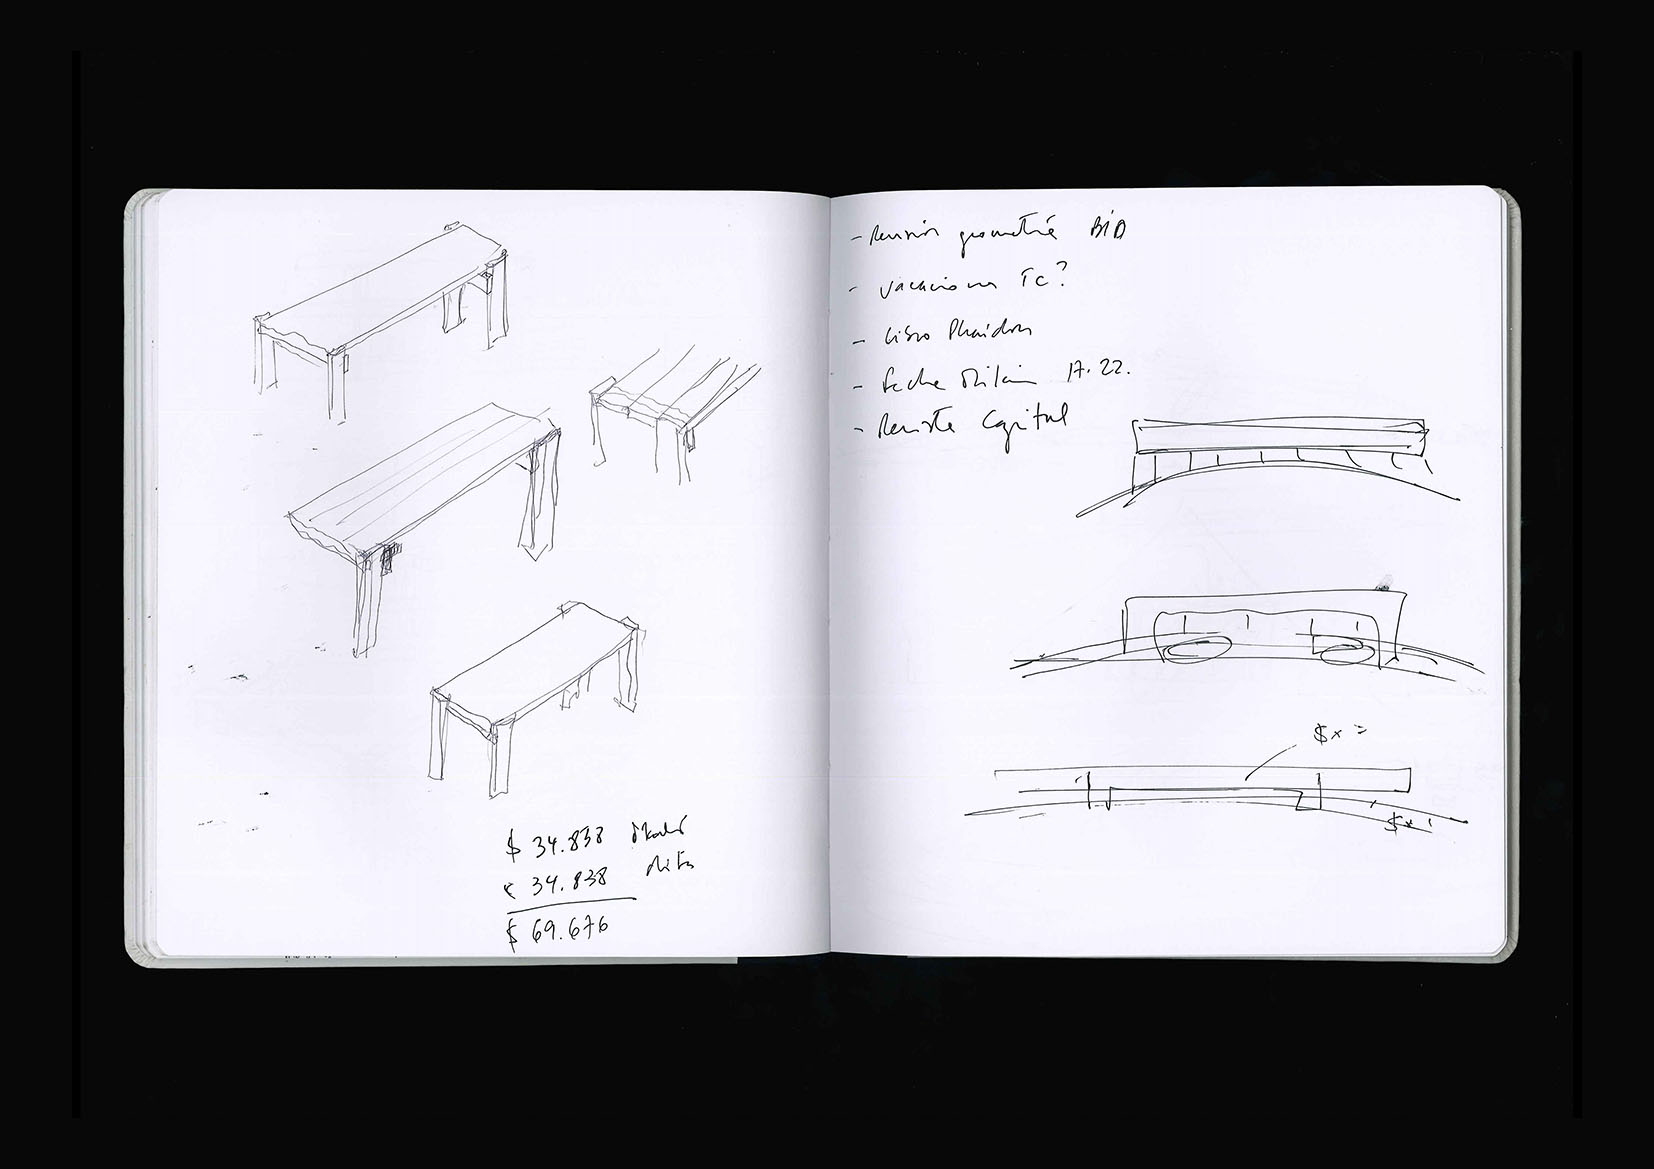 $ 34.838
34.838
$ 69.676
- Revisión geometría BID
- vacaciones TC?
- Libro Phaidon
- fecha Milán 17.22.
- Revista Capital
$x =
$x =